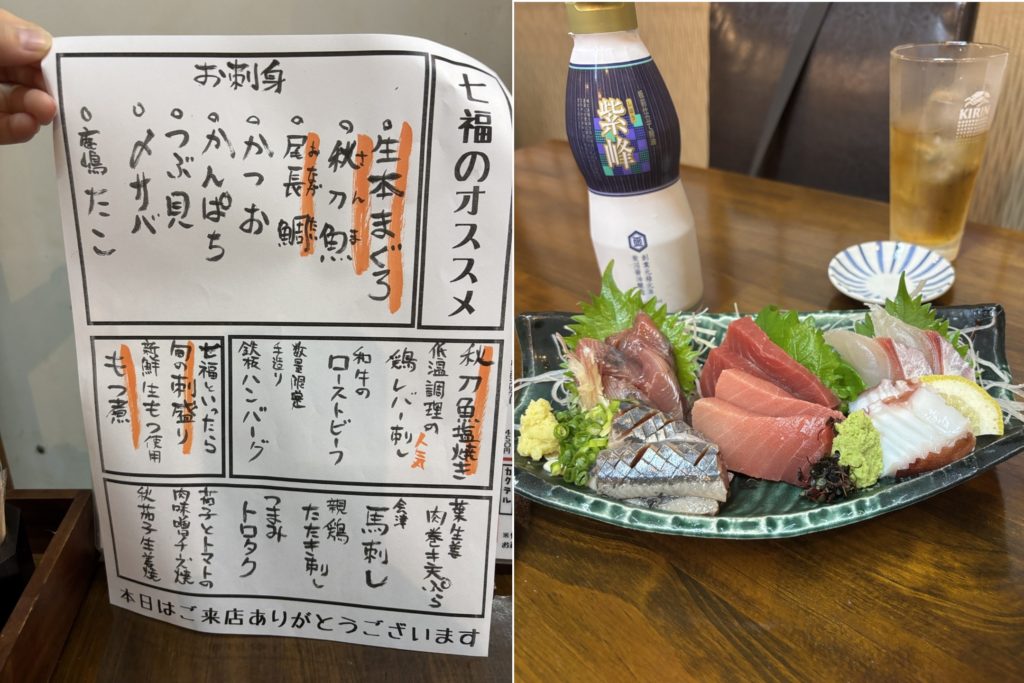 七福のオススメ
お刺身
生本まぐろ
秋刀魚
さんま
尾長鯛
おなが鯛
かつお
かんぱち
つぶ貝
〆サバ
鹿嶋たこ
秋刀魚塩焼き
低温調理の
鶏レバー刺し
人気
和牛の
ローストビーフ
数量限定
手造り
鉄板ハンバーグ
七福といったら
旬の刺盛り
新鮮生もつ使用
もつ煮
葉生姜
肉巻き天ぷら
会津
馬刺し
親鶏
たたき刺し
つまみ
トロタク
茄子とトマトの
肉味噌チーズ焼
秋茄子生姜焼
本日はご来店ありがとうございます
カクテル
紫峰
KIRIN